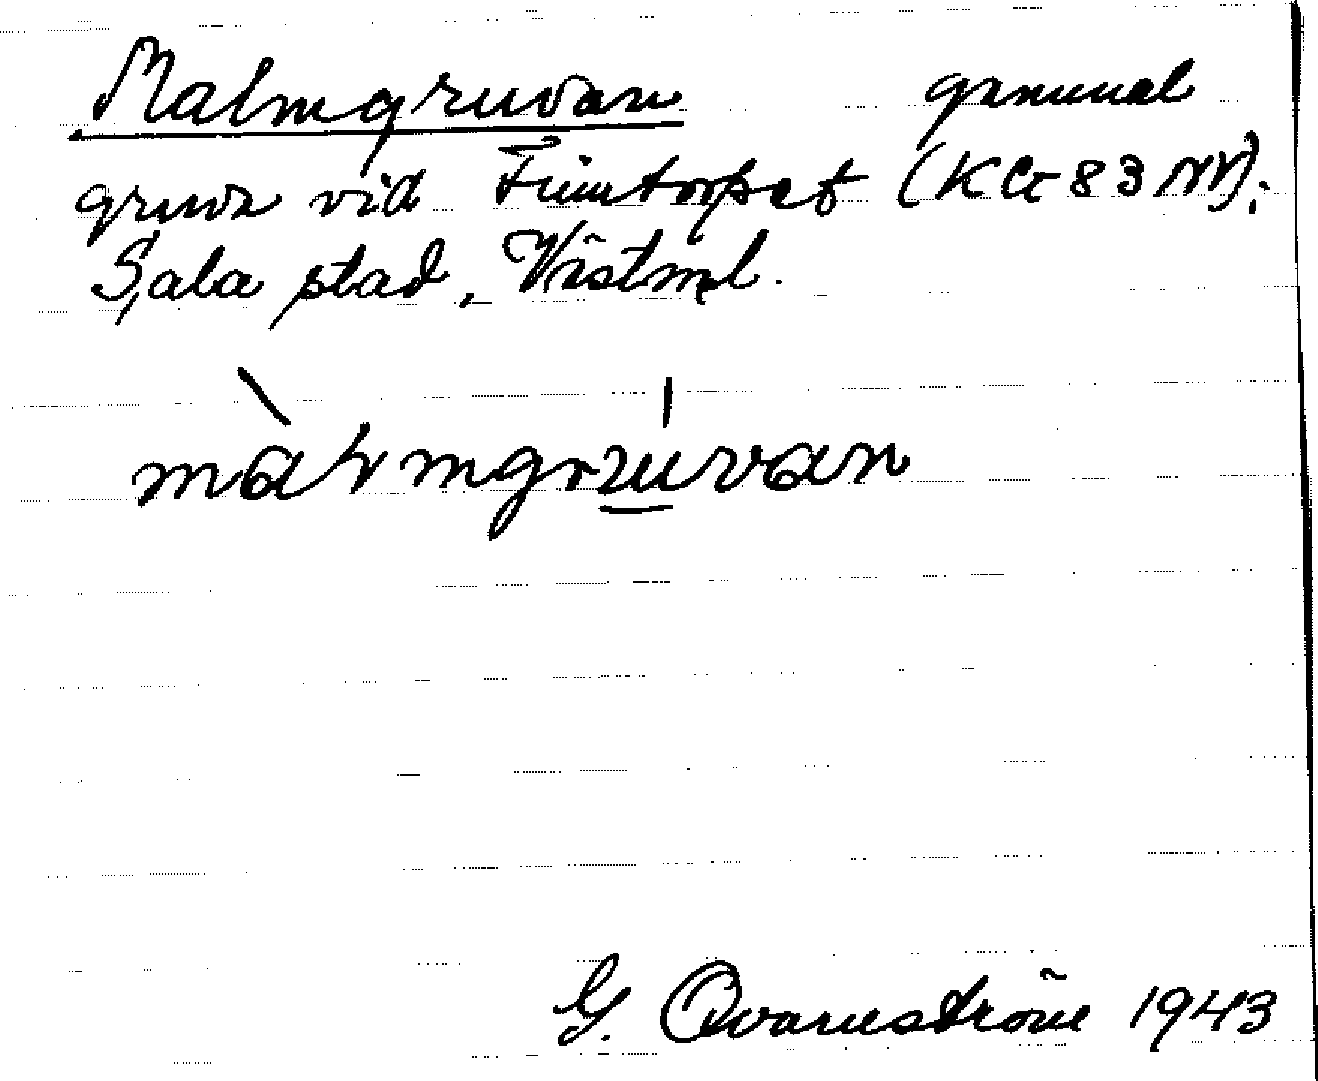 Malmgruvan gammal
gruva vid Finntorpet (KG 83 NV);
Sala stad, Västml.
màlmgrúvan
G. Qvarnström 1943